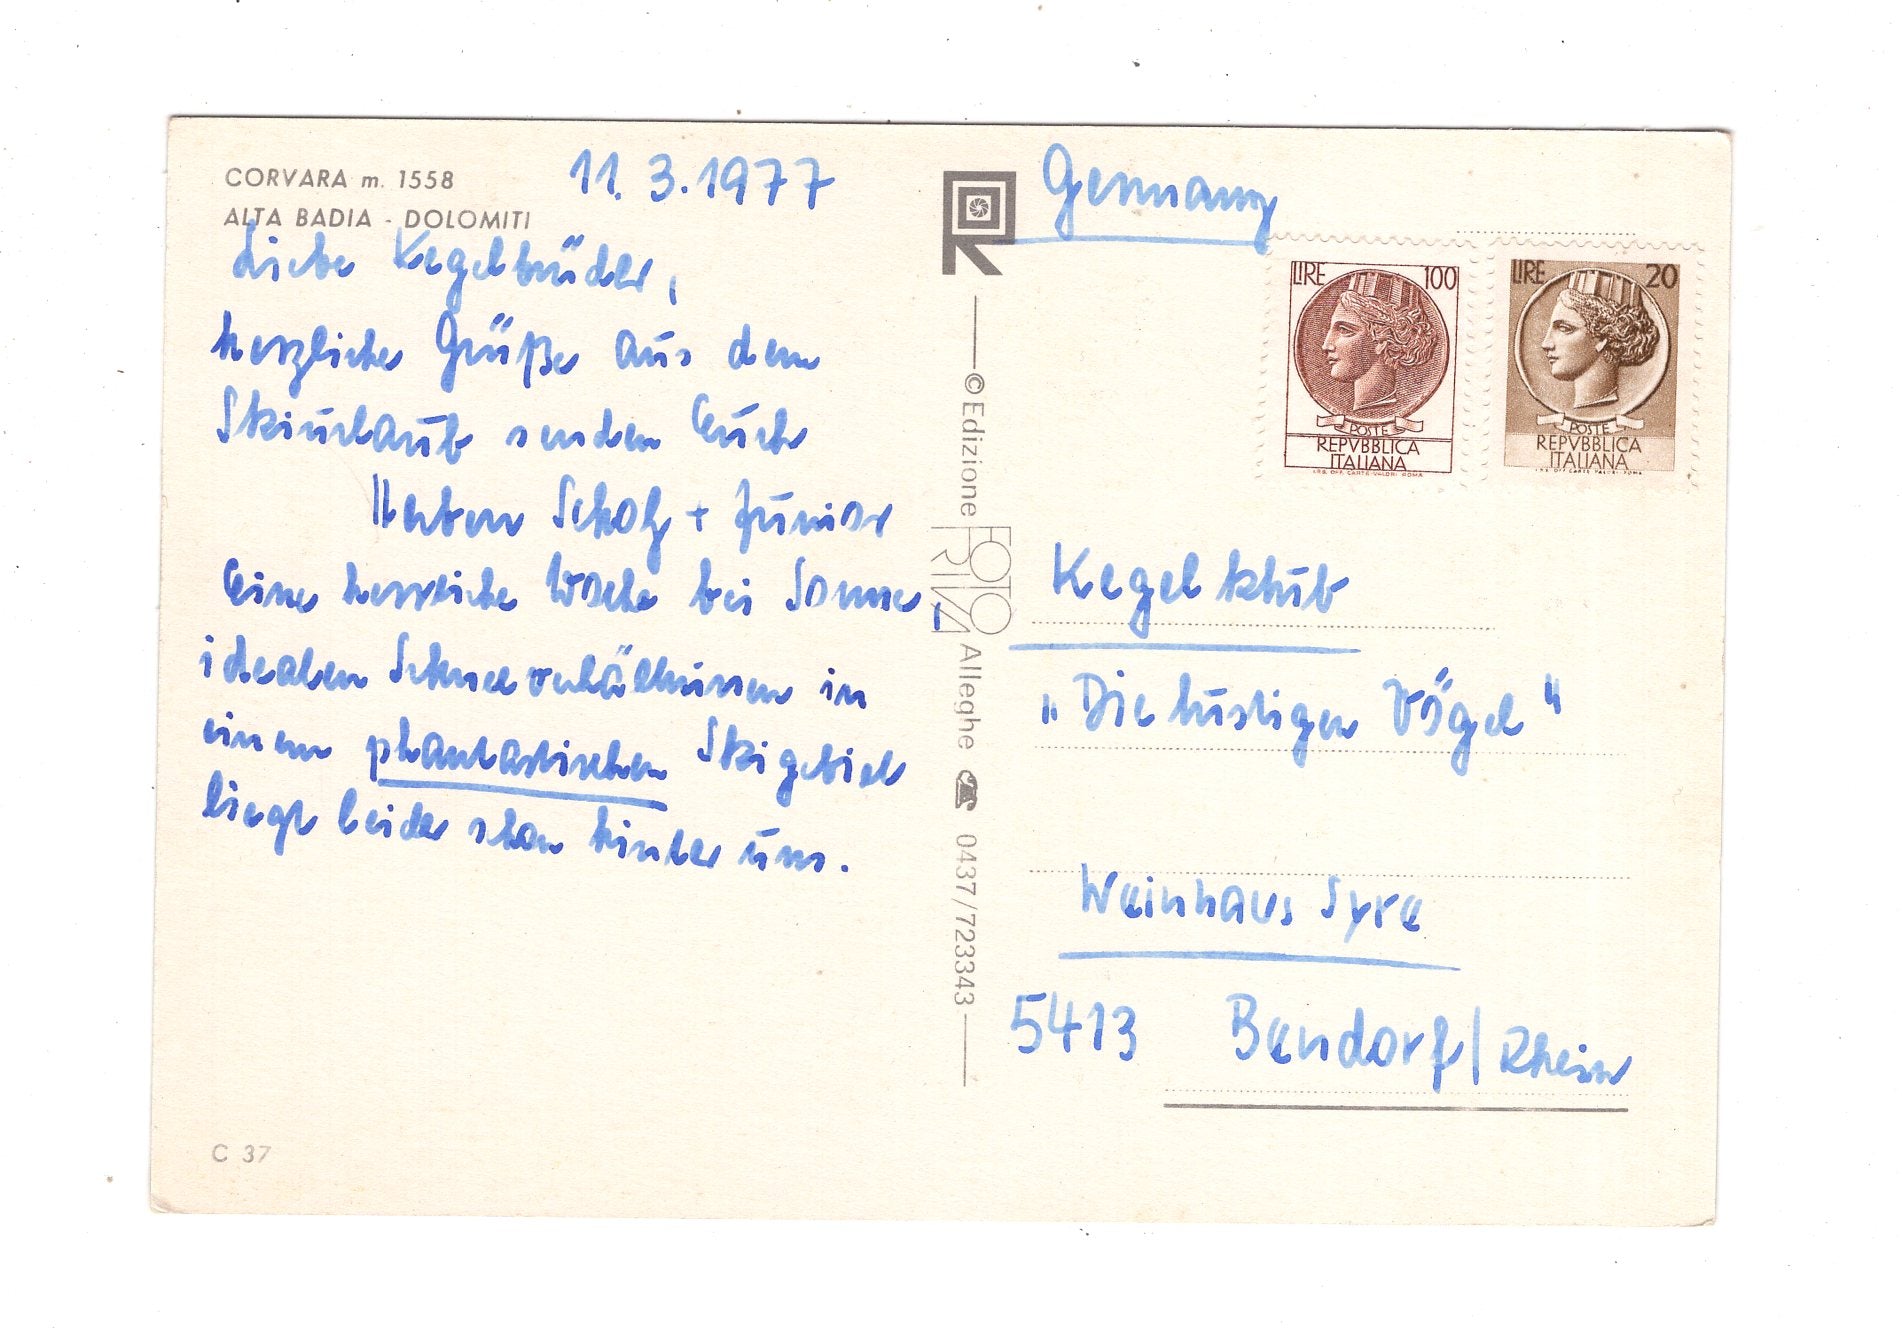 CORVARA m. 1558
ALTA BADIA - DOLOMITI
11.3.1977
Liebe Kegelbrüder,
herzliche Grüße aus dem
Skiurlaub senden Euch
Scholz + Junior
Eine herrliche Woche bei Sonne,
idealen Schneeverhältnissen in
einem phantastischen Skigebiet
liegt leider schon hinter uns.
C 37
© Edizione FOTO RIVA Alleghe ☎ 0437/723343
Germany
LIRE 100
POSTE
REPVBBLICA
ITALIANA
I.P.S. OFF. CARTE VALORI ROMA
LIRE 20
POSTE
REPVBBLICA
ITALIANA
I.P.S. OFF. CARTE VALORI ROMA
Kegelklub
„Die lustigen Vögel"
Weinhaus Syre
5413 Bendorf/Rhein